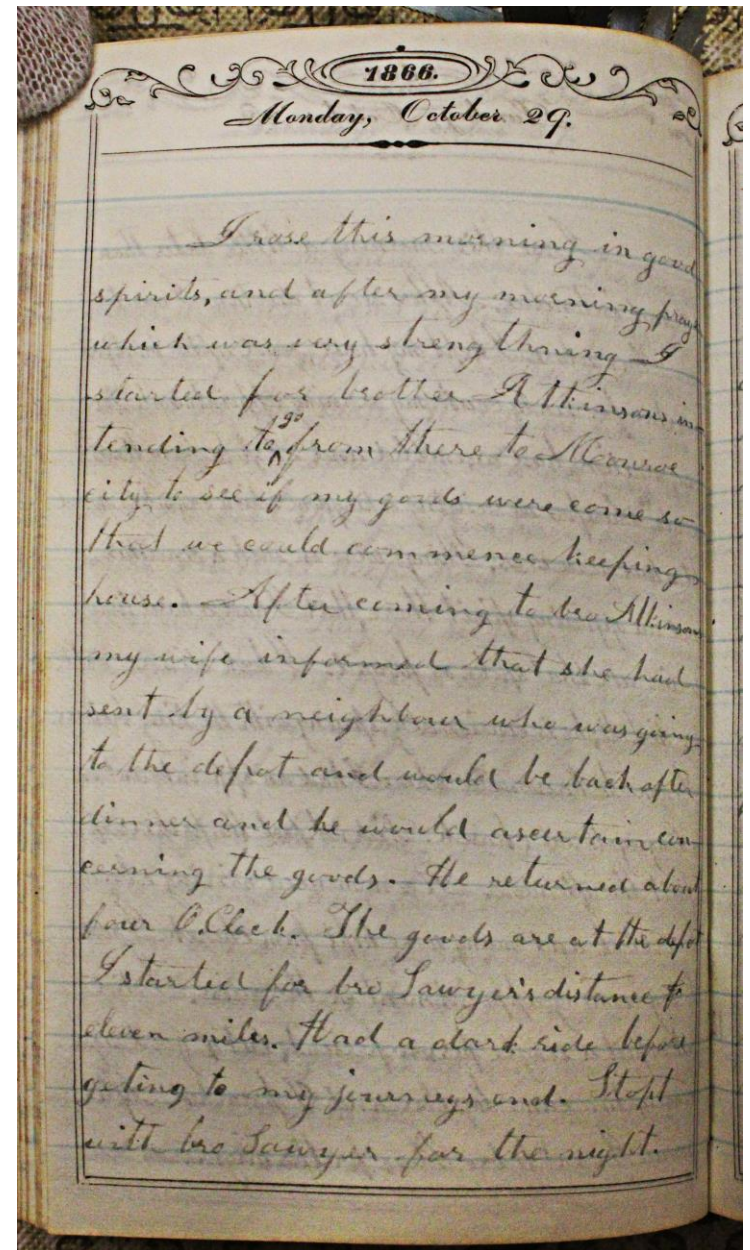 1866.
Monday, October 29.
I rose this morning in good
spirits, and after my morning pray
which was very strengthning I
started for brother Atkinsons in
tending to go from there to Monroe
city to see if my goods were come so
that we could commence keeping
house. After coming to bro Atkinsons
my wife informed that she had
sent by a neighbour who was going
to the depot and would be back after
dinner and he would ascertain con
cerning the goods. He returned about
four O.Clock. The goods are at the depot
I started for bro Sawyer's distance
eleven miles. Had a dark ride before
geting to my journeys end. Stopt
with bro Sawyer for the night.